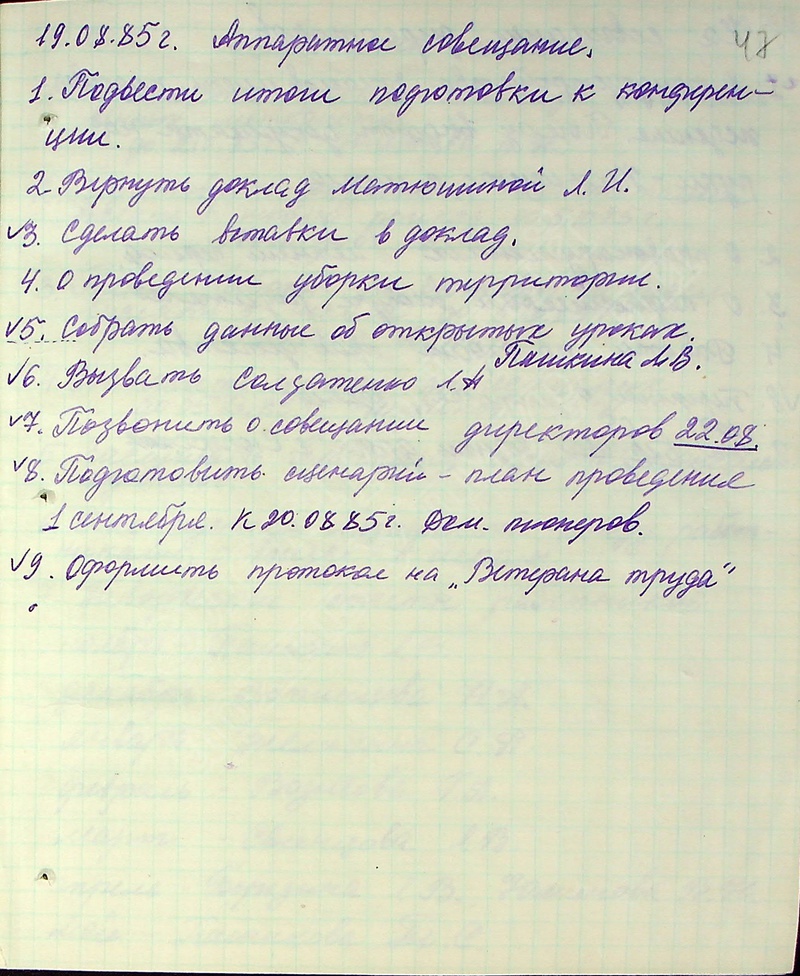 19.08.85г. Аппаратное совещание. 47
1. Подвести итоги подготовки к конферен-
ции.
2. Вернуть доклад Матюшиной Л. И.
√3. Сделать вставки в доклад.
4. О проведении уборки территории.
√5. Собрать данные об открытых уроках.
Пашкина Л.В.
√6. Вызвать Солдатенко Л.А
√7. Позвонить о совещании директоров 22.08.
√8. Подготовить сценарий - план проведения
1 сентября. К 20.08 85г. Дом. пионеров.
√9. Оформить протокол на „Ветерана труда"